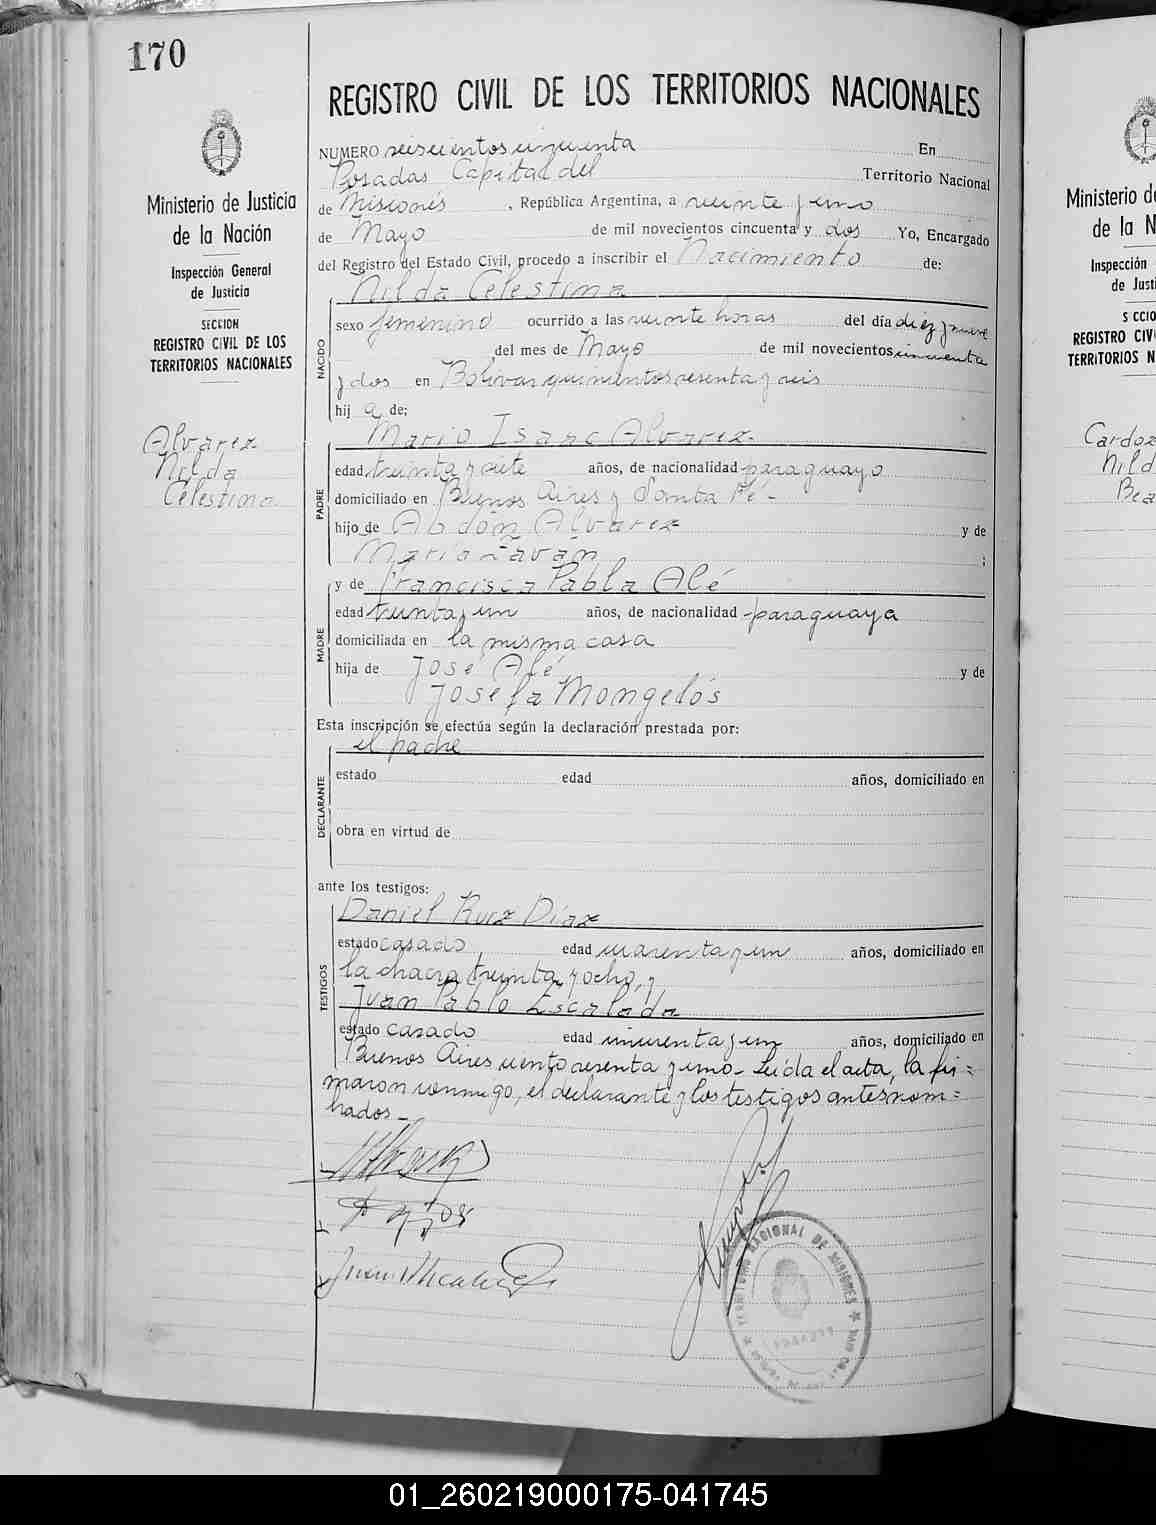 170
REGISTRO CIVIL DE LOS TERRITORIOS NACIONALES
Ministerio de Justicia
de la Nación
Inspección General
de Justicia
SECCION
REGISTRO CIVIL DE LOS
TERRITORIOS NACIONALES
Alvarez
Nilda
Celestina
NUMERO seiscientos cincuenta En
Posadas Capital del Territorio Nacional
de Misiones, República Argentina, a veinte y uno
de Mayo de mil novecientos cincuenta y dos Yo, Encargado
del Registro del Estado Civil, procedo a inscribir el Nacimiento de:
NACIDO
Nilda Celestina
sexo femenino ocurrido a las veinte horas del día diez y nueve
del mes de Mayo de mil novecientos cincuenta
y dos en Bolívar quinientos sesenta y seis
hij a de:
PADRE
Mario Isaac Alvarez
edad treinta y siete años, de nacionalidad paraguayo
domiciliado en Buenos Aires y Santa Fé-
hijo de Abdón Alvarez y de
María Zaván ;
MADRE
y de Francisca Pabla Alé
edad treinta y un años, de nacionalidad paraguaya
domiciliada en la misma casa
hija de José Alé y de
Josefa Mongelós
Esta inscripción se efectúa según la declaración prestada por:
DECLARANTE
el padre
estado edad años, domiciliado en
obra en virtud de
ante los testigos:
TESTIGOS
Daniel Ruiz Díaz
estado casado edad cuarenta y un años, domiciliado en
la chacra treinta y ocho, y
Juan Pablo Escalada
estado casado edad cincuenta y un años, domiciliado en
Buenos Aires ciento sesenta y uno- Leída el acta, la fir=
maron conmigo, el declarante y los testigos antes nom=
brados-
TERRITORIO NACIONAL DE MISIONES
Ministerio de
de la N
Inspección
de Justi
S CCIO
REGISTRO CIV
TERRITORIOS N
Cardoz
Nild
Bea
01_260219000175-041745